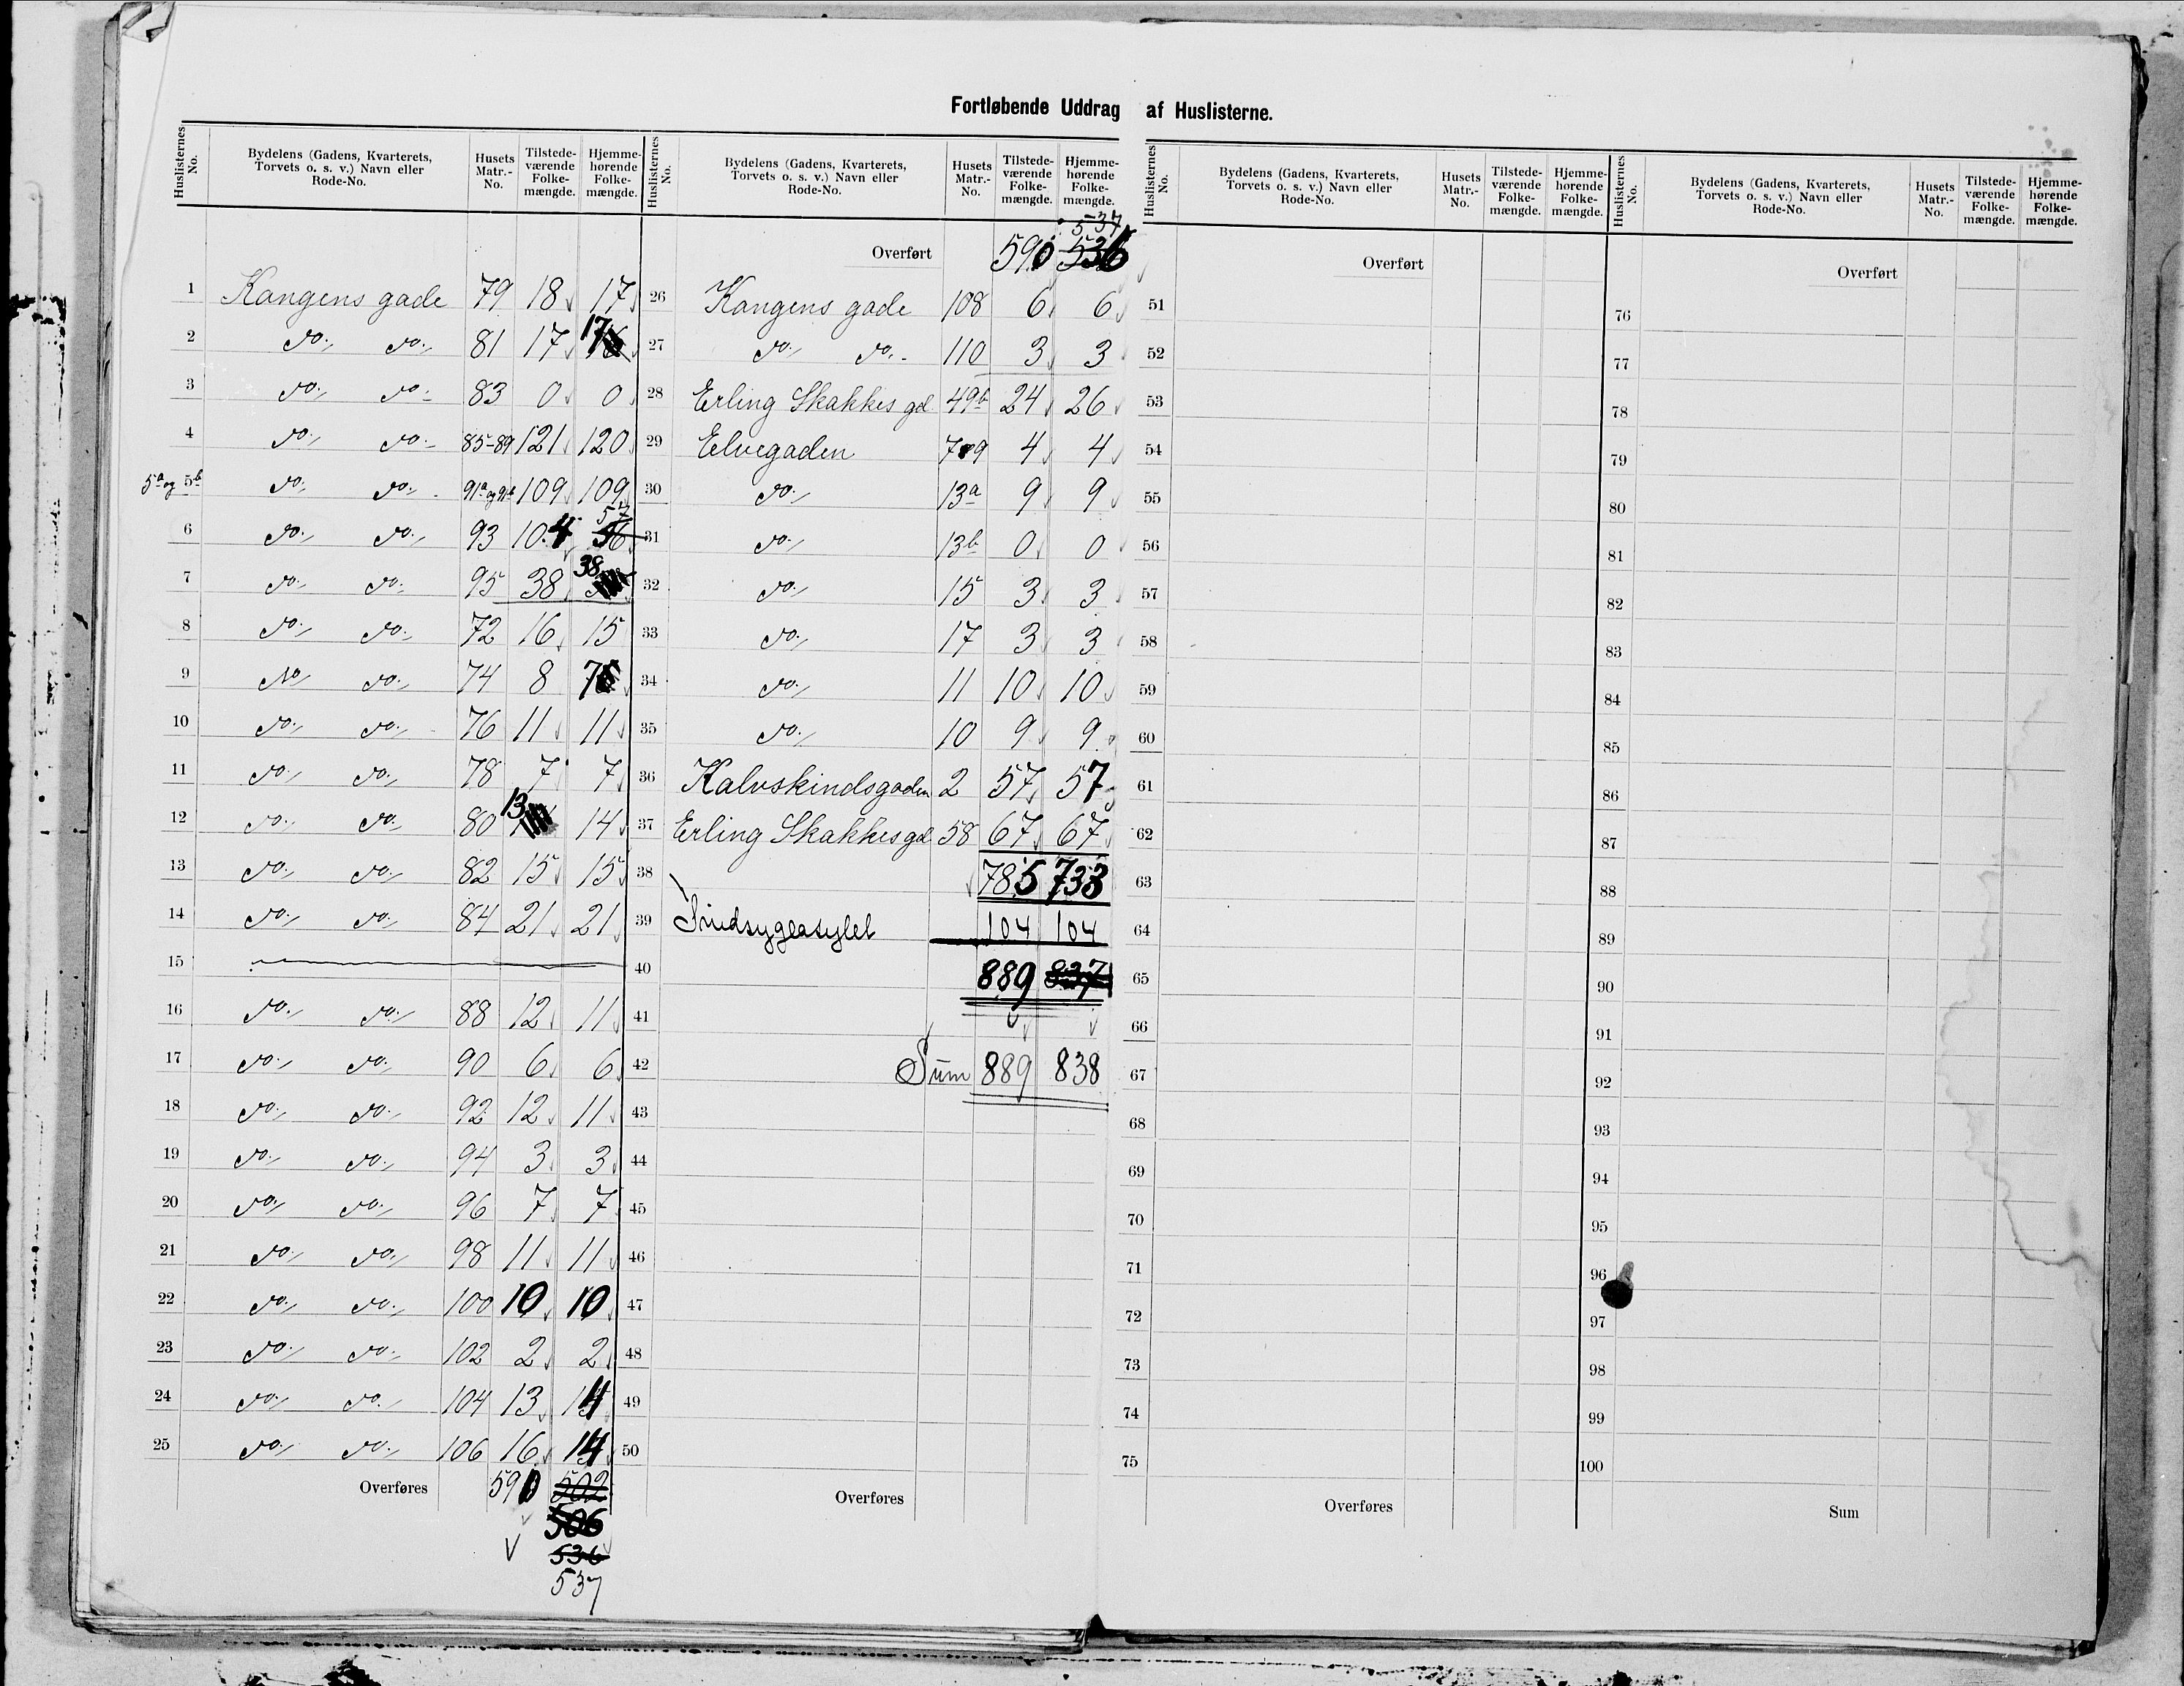 Fortløbende Uddrag af Huslisterne.
Huslisternes No. Bydelens (Gadens, Kvarterets, Torvets o. s. v.) Navn eller Rode-No. Husets Matr.-No. Tilstede-værende Folke-mængde. Hjemme-hørende Folke-mængde.
1 Kongens gade 79 18 17
2 do. do. 81 17 17
3 do. do. 83 0 0
4 do. do. 85-89 121 120
5a og 5b do. do. 91a og 91b 109 109
6 do. do. 93 104 56 57
7 do. do. 95 38 38
8 do. do. 72 16 15
9 do. do. 74 8 7
10 do. do. 76 11 11
11 do. do. 78 7 7
12 do. do. 80 13 14
13 do. do. 82 15 15
14 do. do. 84 21 21
15
16 do. do. 88 12 11
17 do. do. 90 6 6
18 do. do. 92 12 11
19 do. do. 94 3 3
20 do. do. 96 7 7
21 do. do. 98 11 11
22 do. do. 100 10 10
23 do. do. 102 2 2
24 do. do. 104 13 14
25 do. do. 106 16 14
Overføres 590 502
506
536
537
Huslisternes No. Bydelens (Gadens, Kvarterets, Torvets o. s. v.) Navn eller Rode-No. Husets Matr.-No. Tilstede-værende Folke-mængde. Hjemme-hørende Folke-mængde.
537
Overført 590 536
26 Kongens gade 108 6 6
27 do. do. 110 3 3
28 Erling Skakkes gd. 49b 24 26
29 Elvegaden 7&9 4 4
30 do. 13a 9 9
31 do. 13b 0 0
32 do. 15 3 3
33 do. 17 3 3
34 do. 11 10 10
35 do. 10 9 9
36 Kalvskindsgaden 2 57 57
37 Erling Skakkes gd. 58 67 67
38 785 733
39 Sindsygeasylet 104 104
40 889 837
41
42 Sum 889 838
43
44
45
46
47
48
49
50
Overføres
Huslisternes No. Bydelens (Gadens, Kvarterets, Torvets o. s. v.) Navn eller Rode-No. Husets Matr.-No. Tilstede-værende Folke-mængde. Hjemme-hørende Folke-mængde.
Overført
51
52
53
54
55
56
57
58
59
60
61
62
63
64
65
66
67
68
69
70
71
72
73
74
75
Overføres
Huslisternes No. Bydelens (Gadens, Kvarterets, Torvets o. s. v.) Navn eller Rode-No. Husets Matr.-No. Tilstede-værende Folke-mængde. Hjemme-hørende Folke-mængde.
Overført
76
77
78
79
80
81
82
83
84
85
86
87
88
89
90
91
92
93
94
95
96
97
98
99
100
Sum